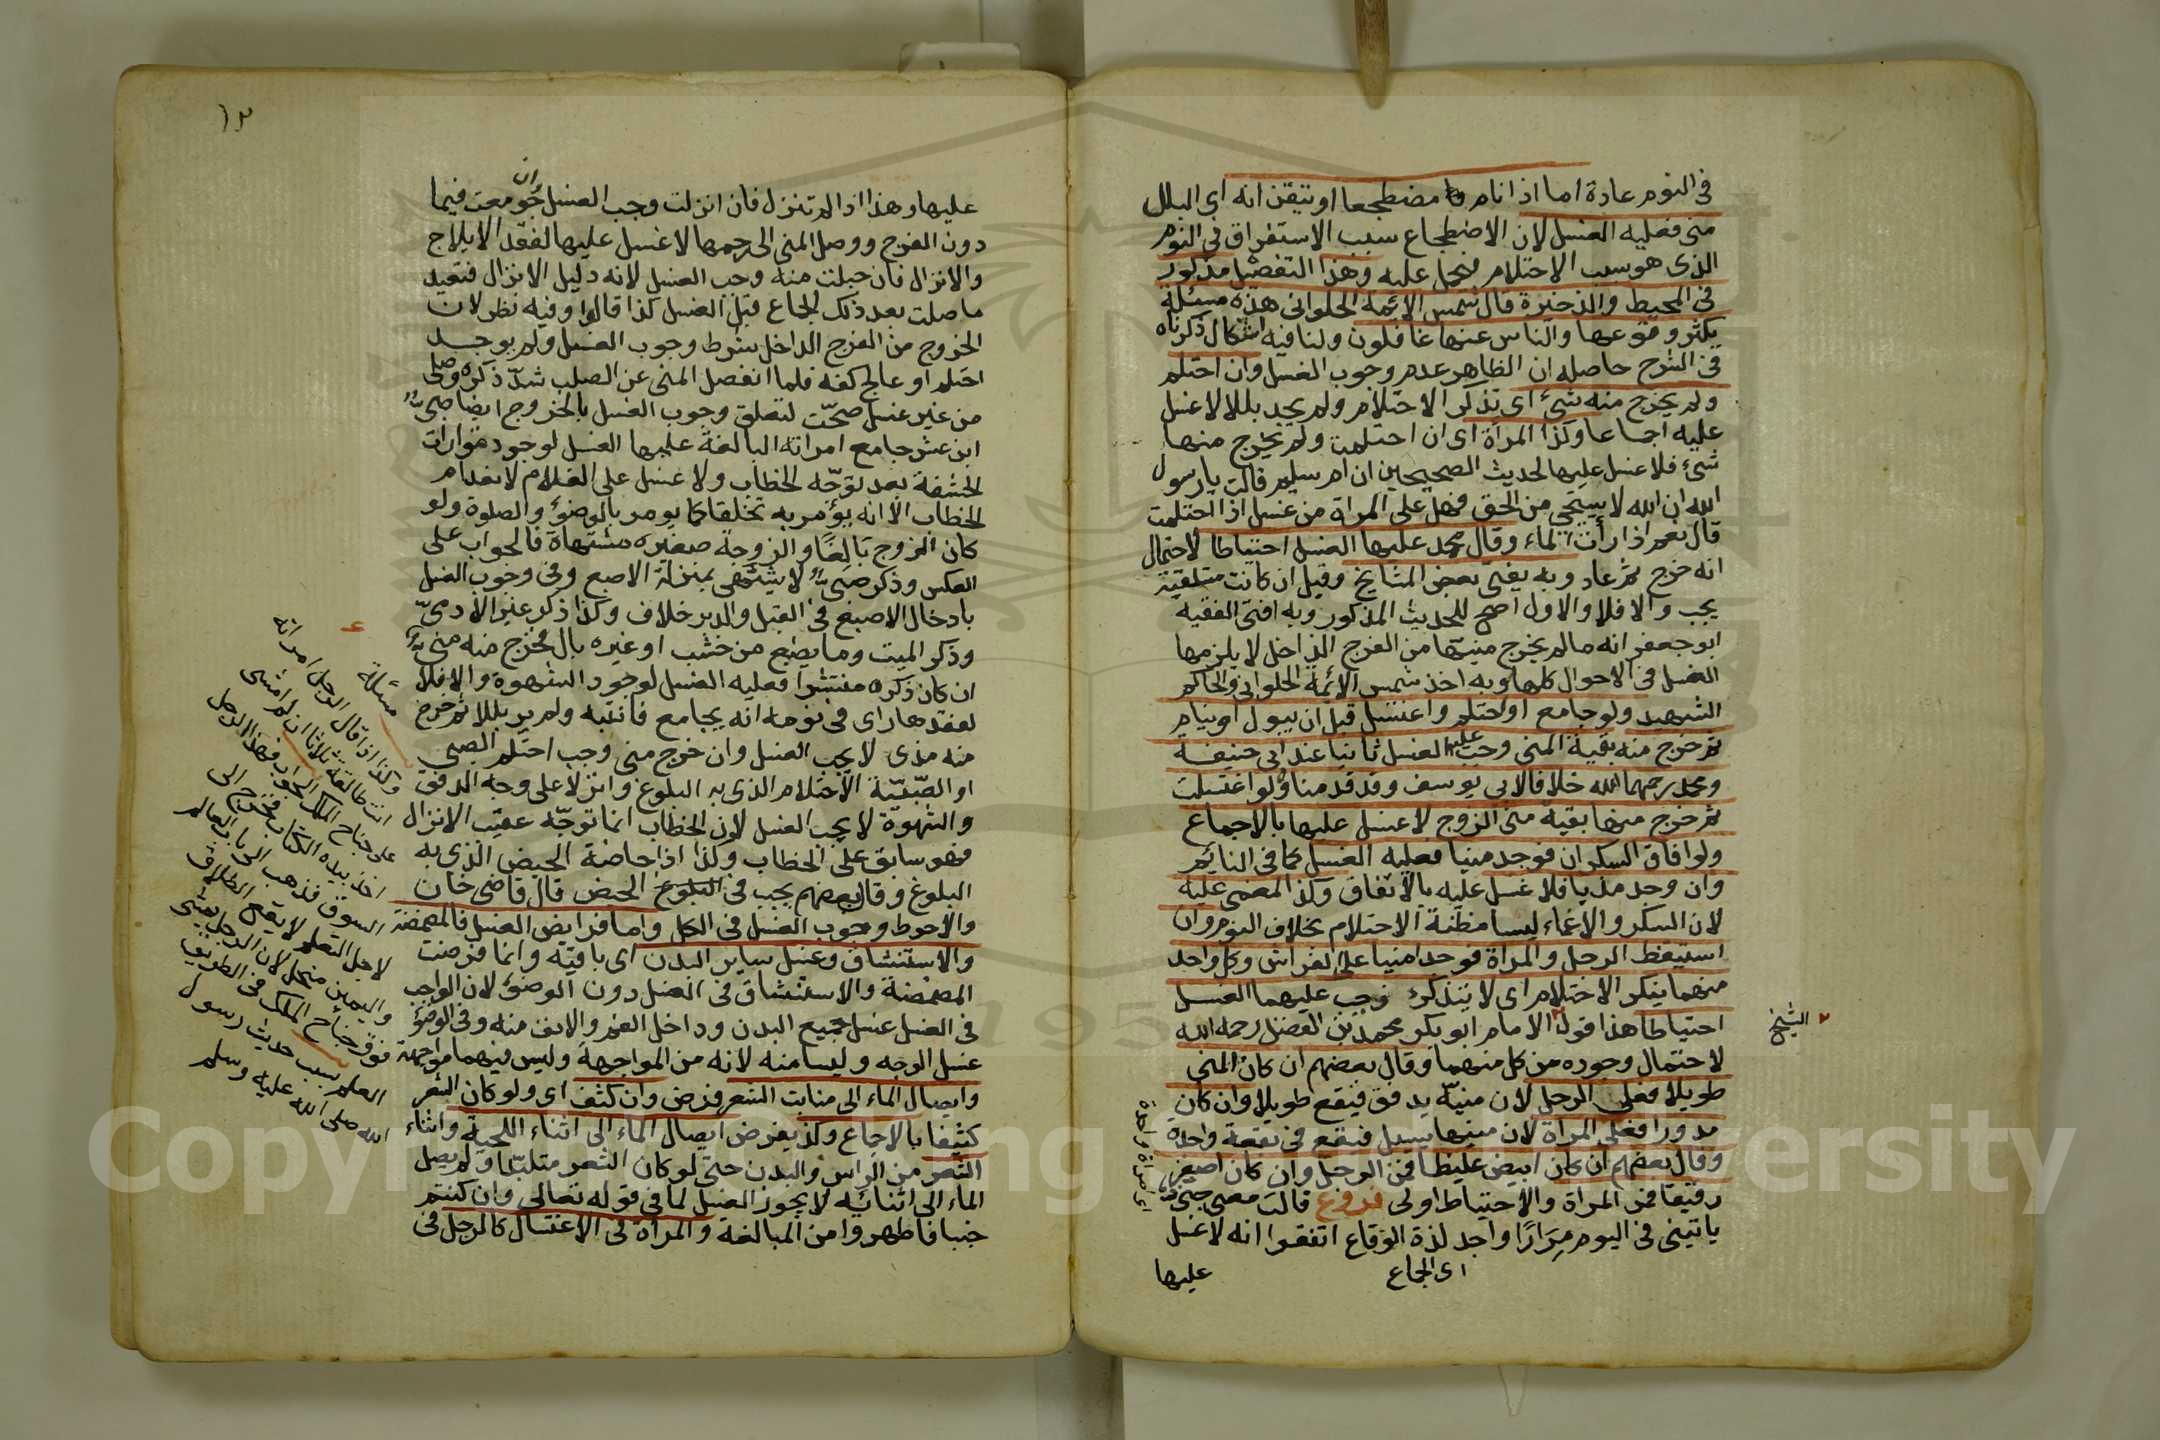 في النوم عادة اما اذا نام مضطجعا او تيقن انه اى البلل
منى فعليه الغسل لان الاضطجاع سبب الاستغراق في النوم
الذى هو سبب الاحتلام فيحمل عليه وهذا التفصيل مذكور
في المحيط والذخيرة قال شمس الائمة الحلوانى هذه مسئلة
يكثر وقوعها والناس عنها غافلون ولنا فيه اشكال ذكرناه
في الشرح حاصله ان الظاهر عدم وجوب الغسل وان احتلم
ولم يخرج منه شئ اى تذكر الاحتلام ولم يجد بللا لا غسل
عليه اجماعا وكذا المرأة اى ان احتلمت ولم يخرج منها
شئ فلا غسل عليها لحديث الصحيحين ان ام سليم قالت يا رسول
الله ان الله لا يستحي من الحق فهل على المراة من غسل اذا احتلمت
قال نعم اذا رأت الماء وقال محمد عليها الغسل احتياطا لاحتمال
انه خرج ثم عاد وبه يفتى بعض المشايخ وقيل ان كانت مستلقية
يجب والا فلا والاول اصح للحديث المذكور وبه افتى الفقيه
ابو جعفر انه ما لم يخرج منيها من الفرج الداخل لا يلزمها
الغسل في الاحوال كلها وبه اخذ شمس الائمة الحلوانى والحاكم
الشهيد ولو جامع او احتلم واغتسل قبل ان يبول او ينام
ثم خرج منه بقية المنى وجب عليه الغسل ثانيا عند ابى حنيفة
ومحمد رحمهما الله خلافا لابى يوسف وقد قدمنا ولو اغتسلت
ثم خرج منها بقية منى الزوج لا غسل عليها بالاجماع
ولو افاق السكران فوجد منيا فعليه الغسل كما في النائم
وان وجد مذيا فلا غسل عليه بالاتفاق وكذا المغمى عليه
لان السكر والاغماء ليسا مظنة الاحتلام بخلاف النوم وان
استيقظ الرجل والمراة فوجدا منيا على الفراش وكل واحد
منهما ينكر الاحتلام اى لا يتذكره وجب عليهما الغسل
احتياطا هذا قول الامام ابو بكر محمد بن الفضل رحمه الله
الشيخ
لاحتمال وجوده من كل منهما وقال بعضهم ان كان المنى
طويلا فعلى الرجل لان منيه يدفق فيقع طويلا وان كان
مدورا فعلى المراة لان منيها يسيل فيقع في بقعة واحدة
وقال بعضهم ان كان ابيض غليظا فمن الرجل وان كان اصفر
رقيقا فمن المراة والاحتياط اولى فروع قالت معى جنى
ياتينى في اليوم مرارا واجد لذة الوقاع اتفقوا انه لا غسل
اى الجماع
عليها
١٢
عليها وهذا اذا لم تنزل فان انزلت وجب الغسل جومعت فيما
ان
دون الفرج ووصل المنى الى رحمها لا غسل عليها لفقد الايلاج
والانزال فان حبلت منه وجب الغسل لانه دليل الانزال فتعيد
ما صلت بعد ذلك الجماع قبل الغسل كذا قالوا وفيه نظر لان
الخروج من الفرج الداخل شرط وجوب الغسل ولم يوجد
احتلم او عالج كفه فلما انفصل المنى عن الصلب شد ذكره وصلى
من غير غسل صحت لتعلق وجوب الغسل بالخروج ايضا صبى
ابن عشر جامع امراته البالغة عليها الغسل لوجود موارات
الحشفة بعد توجه الخطاب ولا غسل على الغلام لانعدام
الخطاب الا انه يؤمر به تخلقا كما يومر بالوضوء والصلوة ولو
كان الزوج بالغا والزوجة صغيره مشتهاة فالجواب على
العكس وذكر صبى لا يشتهى بمنزلة الاصبع وفي وجوب الغسل
بادخال الاصبع في القبل والدبر خلاف وكذا ذكر غير الادمى
وذكر الميت وما يصنع من خشب او غيره بال فخرج منه منى
ان كان ذكره منتشرا فعليه الغسل لوجود الشهوة والا فلا
لفقدها راى في نومه انه يجامع فانتبه ولم ير بللا ثم خرج
منه مذى لا يجب الغسل وان خرج منى وجب احتلم الصبي
او الصبية الاحتلام الذى به البلوغ وانزلا على وجه الدفق
والشهوة لا يجب الغسل لان الخطاب انما توجه عقيب الانزال
فهو سابق على الخطاب وكذا اذا حاضة الحيض الذى به
البلوغ وقال بعضهم يجب في البلوغ الحيض قال قاضى خان
والاحوط وجوب الغسل في الكل واما فرايض الغسل فالمضمضة
والاستنشاق وغسل ساير البدن اى باقيه وانما فرضت
المضمضة والاستنشاق في الغسل دون الوضوء لان الواجب
في الغسل غسل جميع البدن وداخل الفم والانف منه وفي الوضوء
غسل الوجه وليسا منه لانه من المواجهة وليس فيهما مواجهة
وايصال الماء الى منابت الشعر فرض وان كثف اى ولو كان الشعر
كثيفا بالاجماع وكذا يفرض ايصال الماء الى اثناء اللحية واثناء
الشعر من الراس والبدن حتى لو كان الشعر متلبدا ولم يصل
الماء الى اثنائه لا يجوز الغسل لما في قوله تعالى وان كنتم
جنبا فاطهروا من المبالغة والمراة في الاغتسال كالرجل في
مسئلة
وكذا اذا قال الرجل امراته
انت طالقة ثلاثا ان لم امشى
على جناح الملك الجواب فهذا الرجل
اخذ بيده الكتاب فخرج الى
السوق فذهب الى باب العالم
لاجل التعلم لا يقع الطلاق
واليمين منحل لان الرجل يمشى
فوق جناح الملك في الطريق
العلم بسبب حديث رسول
الله صلى الله عليه وسلم